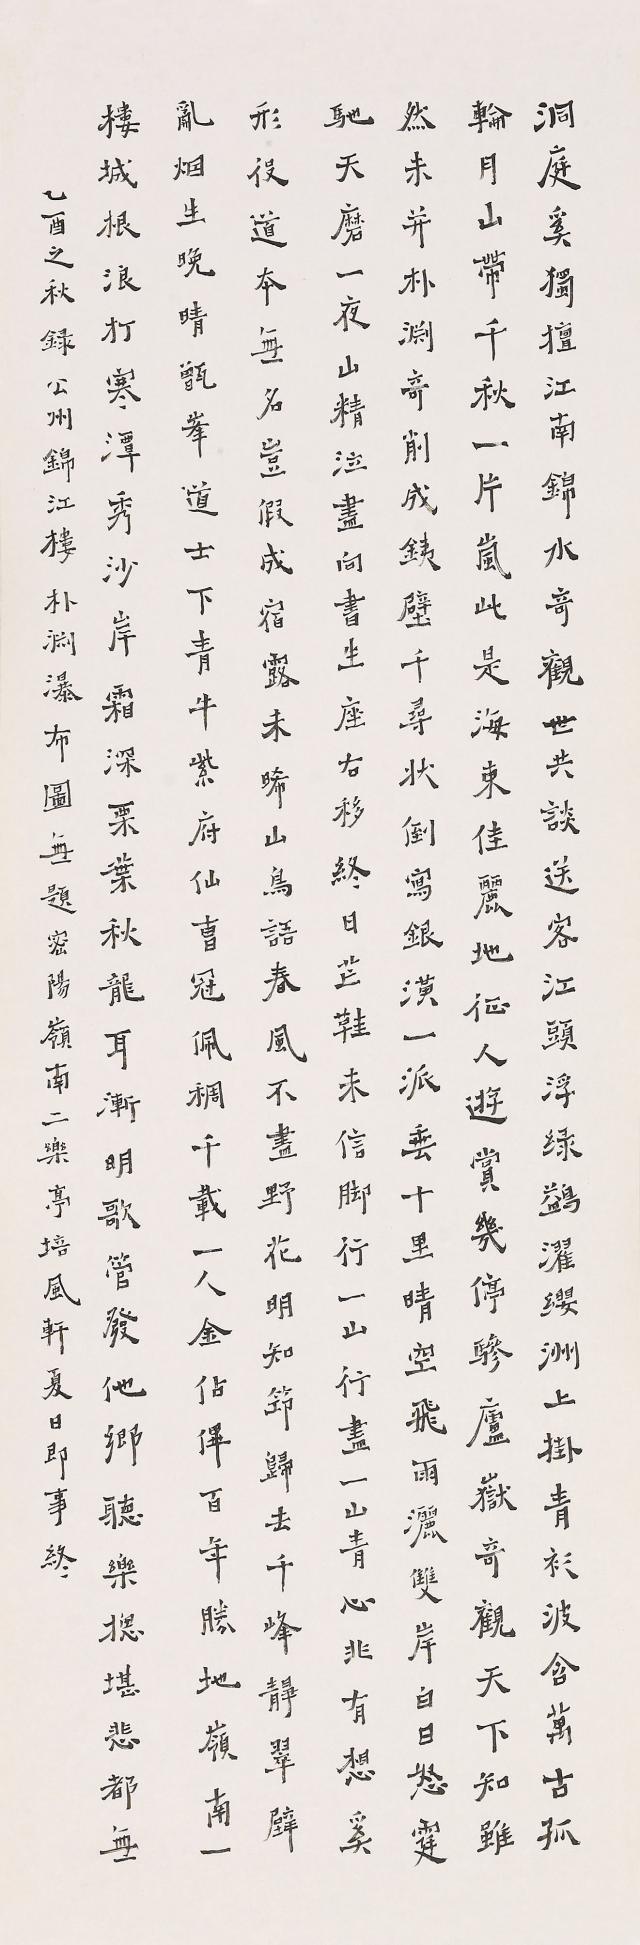 洞庭奚獨擅江南錦水奇觀世共談送客江頭浮绿鷁濯纓洲上掛青衫波含萬古孤
輪月山帶千秋一片嵐此是海東佳麗地征人遊賞幾停驂廬嶽奇觀天下知雖
然未并朴淵奇削成鉄壁千尋状倒寫銀潢一派垂十里晴空飛雨灑雙岸白日怒霆
馳天磨一夜山精泣盡向書生座右移終日芒鞋未信脚行一山行盡一山青心非有想奚
形役道本無名豈假成宿露未晞山鳥語春風不盡野花明知節歸去千峰靜翠壁
亂烟生晚晴甑峯道士下青牛紫府仙曹冠佩稠千載一人金佔俾百年勝地嶺南一
樓城根浪打寒潭秀沙岸霜深栗葉秋龍耳漸明歌管發他鄉聽樂摠堪悲都無
乙酉之秋録公州錦江樓朴淵瀑布圖無題密陽嶺南二樂亭培風軒夏日即事終